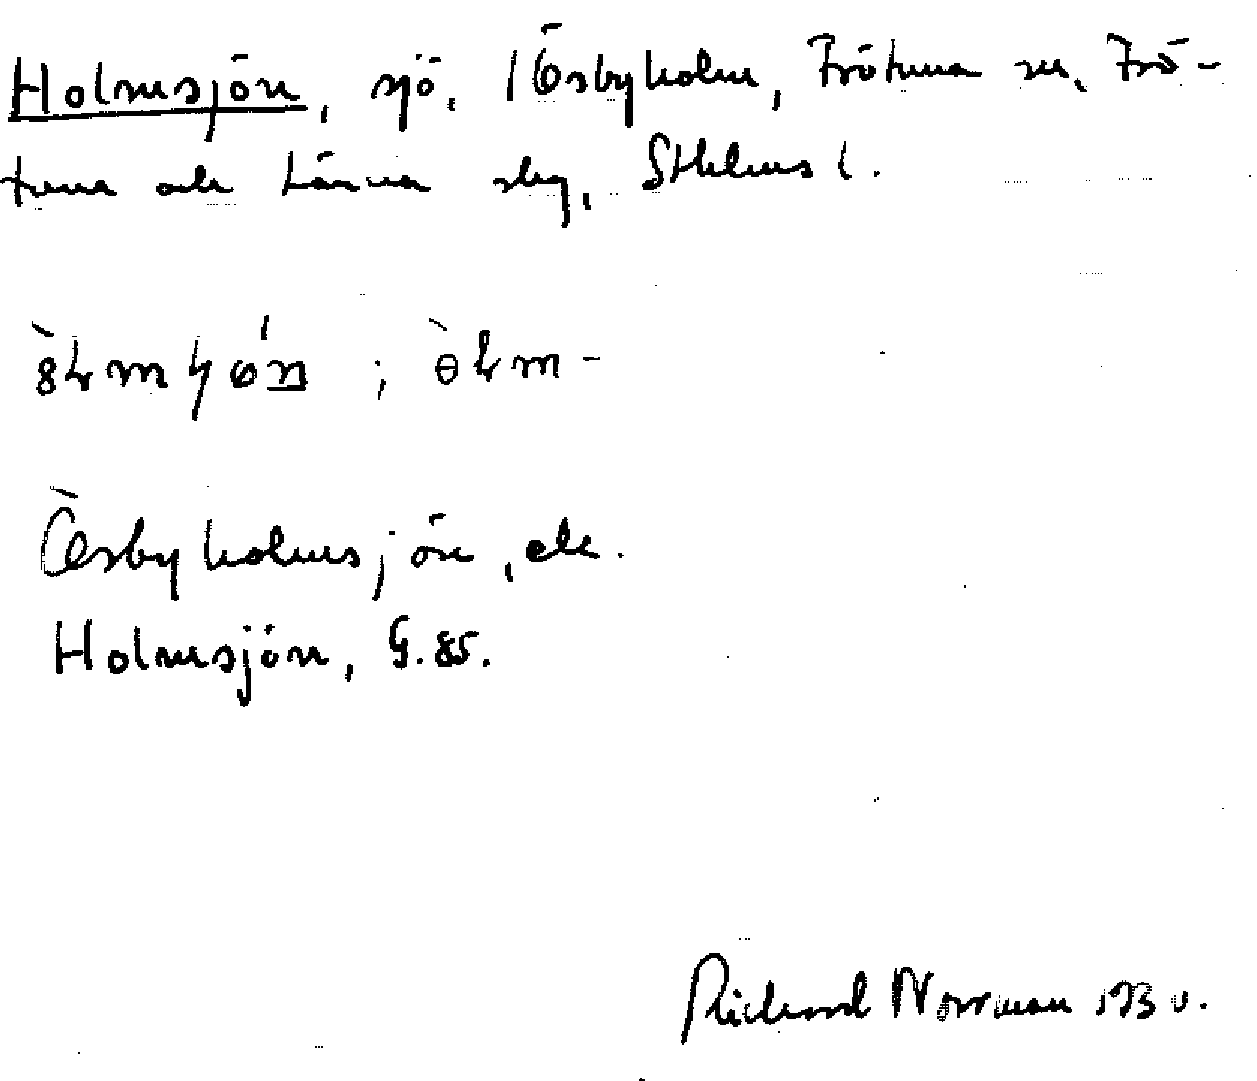 Holmsjön, sjö, i Ösbyholm, Frötuna sn, Frö-
tuna och Länna slg, Sthlms l.
Ösbyholmsjön, ek.
Holmsjön, G. 85.
Richard Norrman 1930.